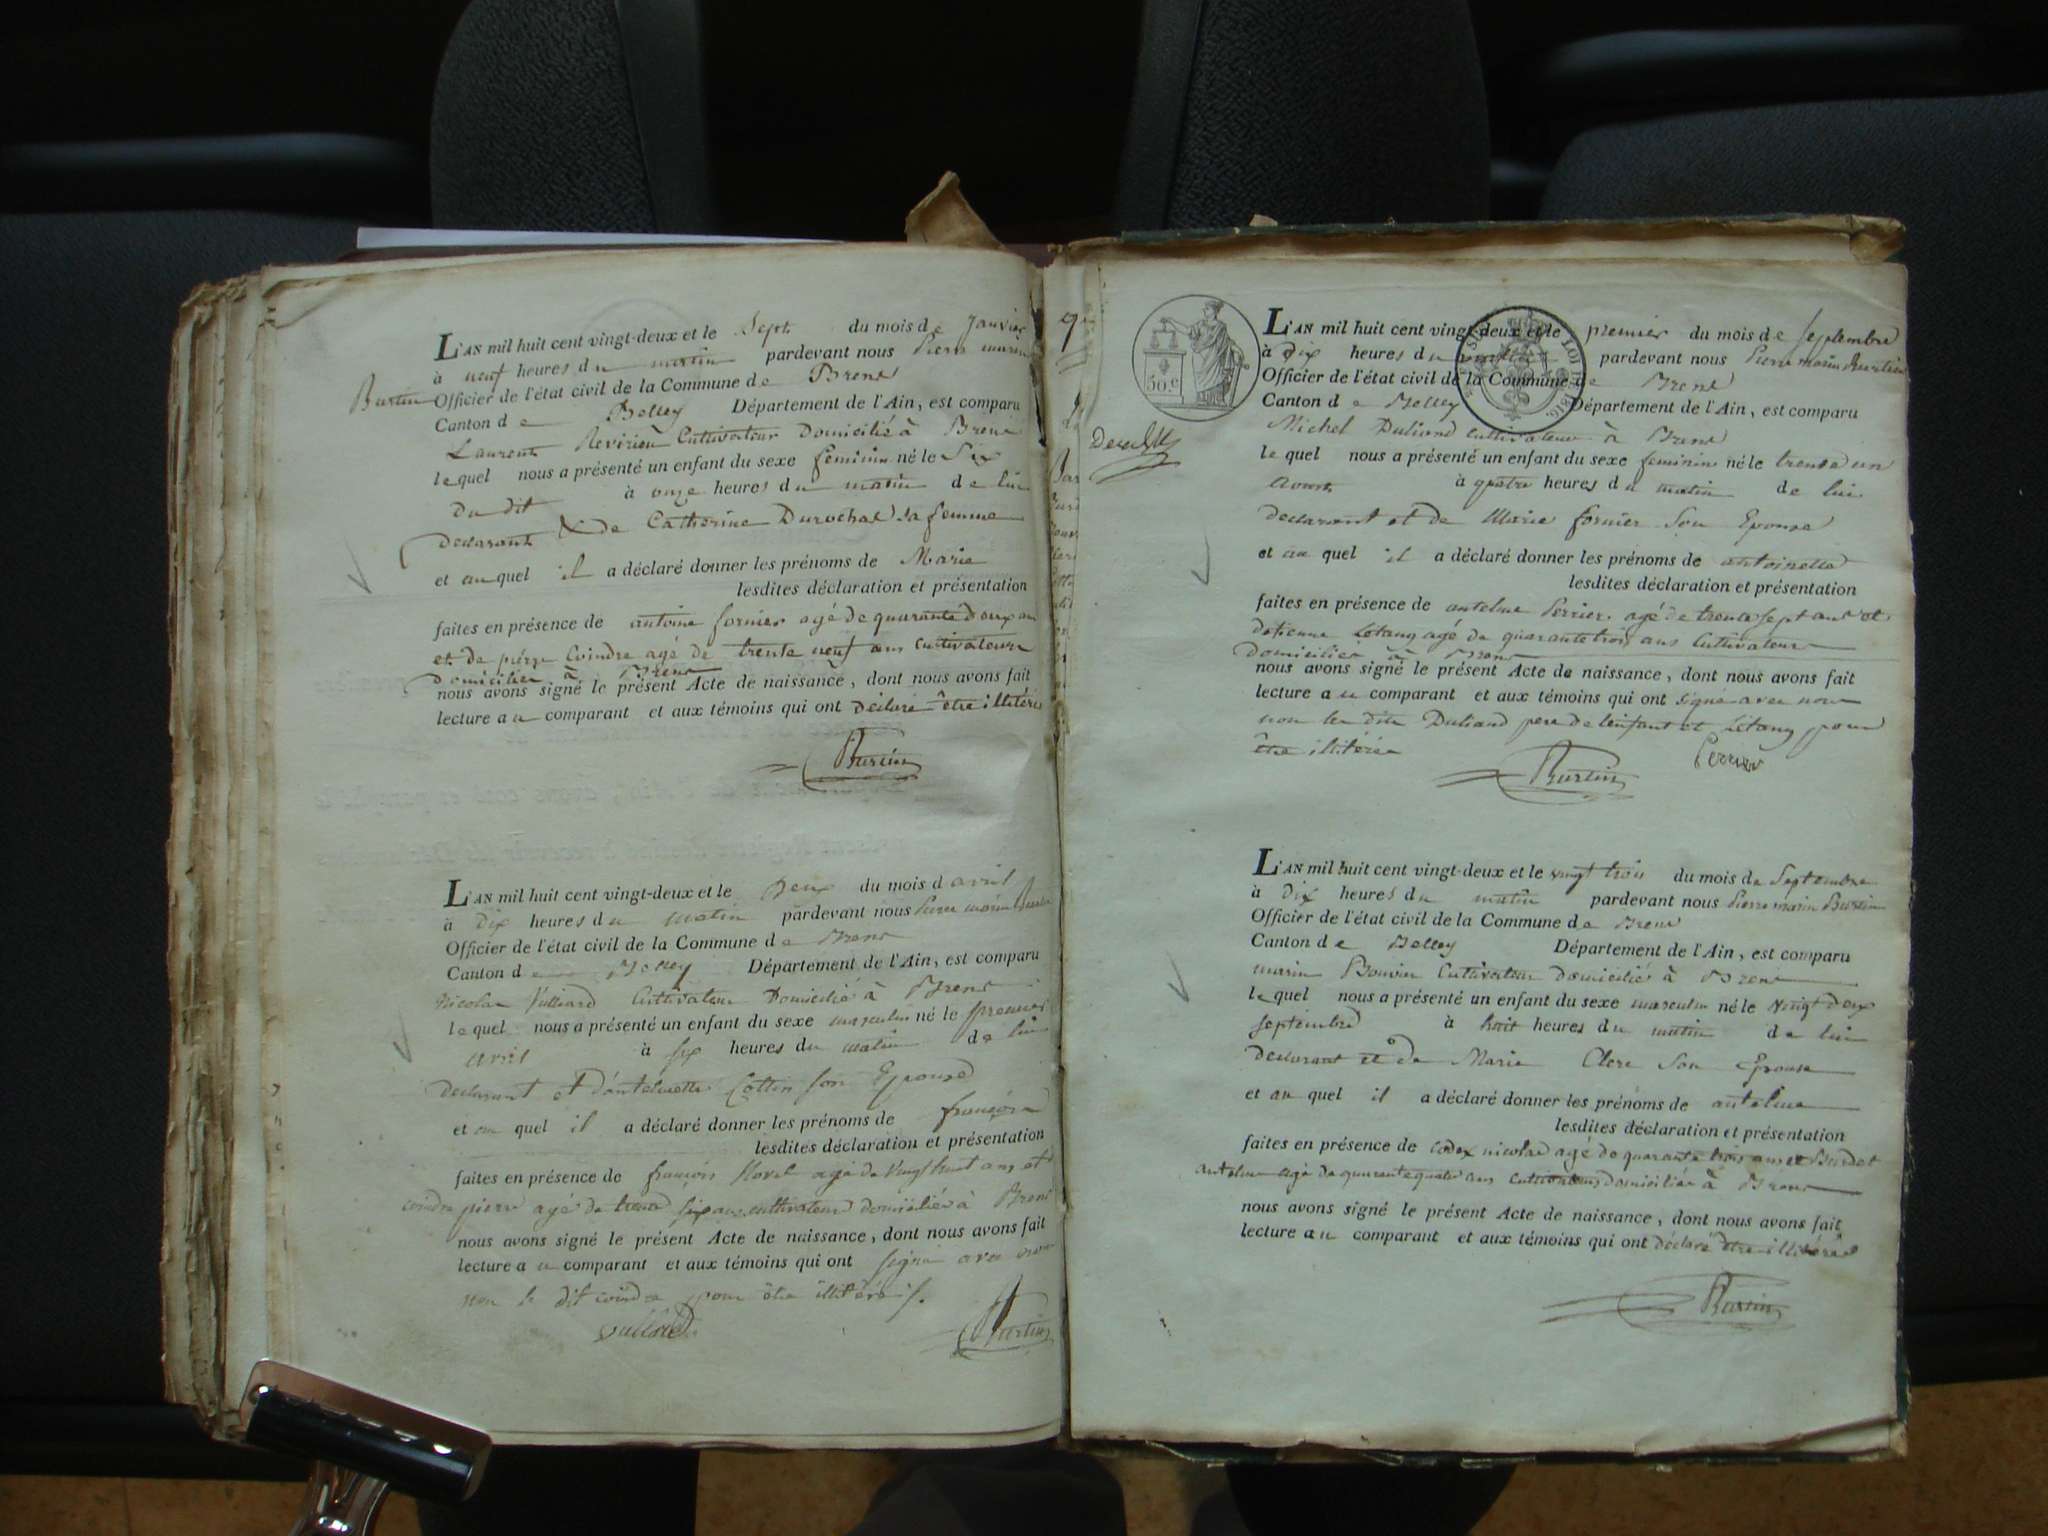 L'AN mil huit cent vingt-deux et le Sept du mois de Janvier
à neuf heures du matin pardevant nous Pierre marin
Burtin Officier de l'état civil de la Commune de Brens
Canton de Belley Département de l'Ain, est comparu
Laurent Revirieu Cultivateur Domicilié à Brens
lequel nous a présenté un enfant du sexe feminin né le Six
Du dit à onze heures du matin de lui
Declarant & de Catherine Durochat sa femme
et auquel il a déclaré donner les prénoms de Marie
lesdites déclaration et présentation
faites en présence de antoine fornier agé de quarante deux an
et de pierre Coindre agé de trente neuf ans Cultivateur
domicilier à Brens
nous avons signé le présent Acte de naissance, dont nous avons fait
lecture au comparant et aux témoins qui ont déclaré être illitéré
Burtin
L'AN mil huit cent vingt-deux et le Deux du mois d avril
à Dix heures du matin pardevant nous Pierre marin Burtin
Officier de l'état civil de la Commune de Brens
Canton de Belley Département de l'Ain, est comparu
Nicolas Julliard Cultivateur Domicilié à Brens
lequel nous a présenté un enfant du sexe masculin né le premier
avril à six heures du matin de lui
Declarant et D'antelmette Cottin son Epouse
et au quel il a déclaré donner les prénoms de françois
lesdites déclaration et présentation
faites en présence de françois agé de vingt huit ans et
coindre pierre agé de trente six ans cultivateur domiciliés à Brens
nous avons signé le présent Acte de naissance, dont nous avons fait
lecture au comparant et aux témoins qui ont signé avec nous
non le dit coindre pour être illitéré
Burtin
50.c
LOI DE 1816.
L'AN mil huit cent vingt-deux et le premier du mois de Septembre
à dix heures du matin pardevant nous Pierre marin Burtin
Officier de l'état civil de la Commune de Brens
Canton de Belley Département de l'Ain, est comparu
Michel Duliand cultivateur à Brens
lequel nous a présenté un enfant du sexe feminin né le trente un
à quatre heures du matin de lui
Declarant et de Marie fornier Son Epouse
et au quel il a déclaré donner les prénoms de antoinette
lesdites déclaration et présentation
faites en présence de antelme Perrier agé de trente sept ans et
detienne Létang agé de quarante trois ans Cultivateur
domicilier à Brens
nous avons signé le présent Acte de naissance, dont nous avons fait
lecture au comparant et aux témoins qui ont signé avec nous
non les dits Duliand pere de l'enfant et Létang pour
être illitéré
Perrier
Burtin
L'AN mil huit cent vingt-deux et le vingt trois du mois de Septembre
à Dix heures du matin pardevant nous Pierre marin Burtin
Officier de l'état civil de la Commune de Brens
Canton de Belley Département de l'Ain, est comparu
marin Bouvier Cultivateur Domicilié à Brens
lequel nous a présenté un enfant du sexe masculin né le vingt deux
septembre à huit heures du matin de lui
Declarant et de Marie Clerc Son Epouse
et au quel il a déclaré donner les prénoms de antelme
lesdites déclaration et présentation
faites en présence de codex nicolas agé de quarante trois ans et Burdet
antelme agé de quarante quatre ans Cultivateurs domiciliés à Brens
nous avons signé le présent Acte de naissance, dont nous avons fait
lecture au comparant et aux témoins qui ont déclaré être illitéré
Burtin